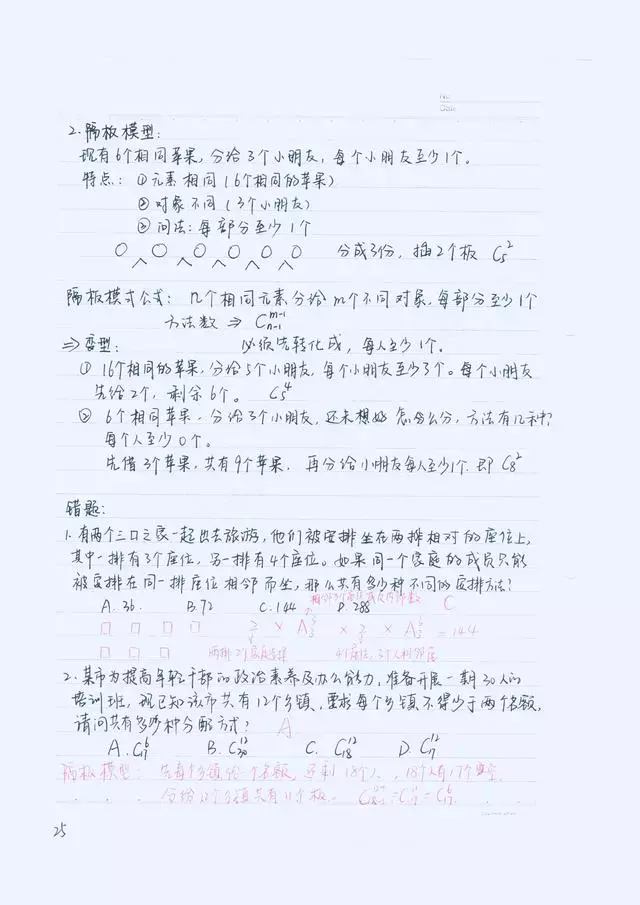 No.
Date
2.隔板模型:
现有6个相同苹果,分给3个小朋友,每个小朋友至少1个。
特点:①元素相同(6个相同的苹果)
②对象不同(3个小朋友)
③问法:每部分至少1个
分成3份,插2个板 C₅²
隔板模式公式:n个相同元素分给m个不同对象,每部分至少1个
方法数 ⇒ Cₙ₋₁ᵐ⁻¹
⇒变型: 必须先转化成,每人至少1个。
①16个相同的苹果,分给5个小朋友,每个小朋友至少3个。每个小朋友
先给2个,剩余6个。 C₅⁴
②6个相同苹果,分给3个小朋友,还未想好怎么分,方法有几种?
每个人至少0个。
先借3个苹果,共有9个苹果,再分给小朋友每人至少1个.即 C₈²
错题:
1.有两个三口之家一起出去旅游,他们被安排坐在两排相对的座位上,
其中一排有3个座位,另一排有4个座位。如果同一个家庭的成员只能
被安排在同一排座位相邻而坐,那么共有多少种不同的安排方法?
A.36. B.72 C.144 D.288 C
2 × A₃³ × 2 × A₃³ =144
2.某市为提高年轻干部的政治素养及办公能力,准备开展一期30人的
培训班,现已知该市共有12个乡镇,要求每个乡镇不得少于两个名额,
请问共有多少种分配方式? A
A.C₁₇⁶ B.C₃₀¹² C.C₁₈¹² D.C₁₇¹²
隔板模型:先每个乡镇给一个名额,还剩18个人,18个人有17个空
分给12个乡镇共有11个板。 =C₁₇¹¹=C₁₇⁶
25